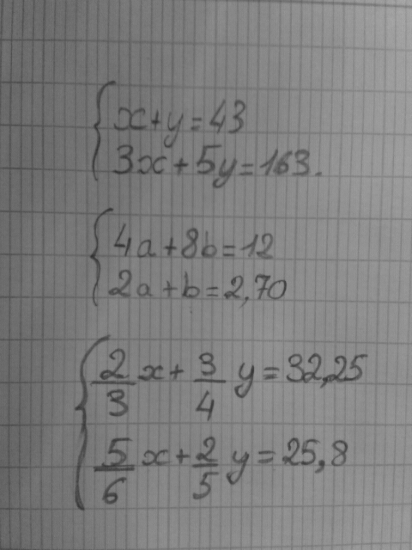 x+y=43
3x+5y=163.
4a+8b=12
2a+b=2,70
2/3 x+ 3/4 y=32,25
5/6 x+ 2/5 y=25,8